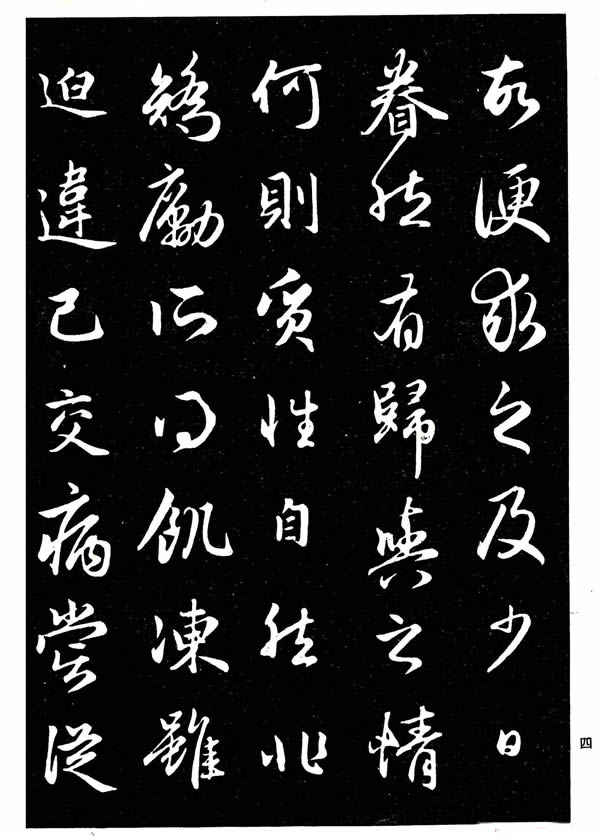 故便求之及少日
眷然有歸與之情
何則質性自然非
矯勵所得飢凍雖
迫違己交病嘗從
四